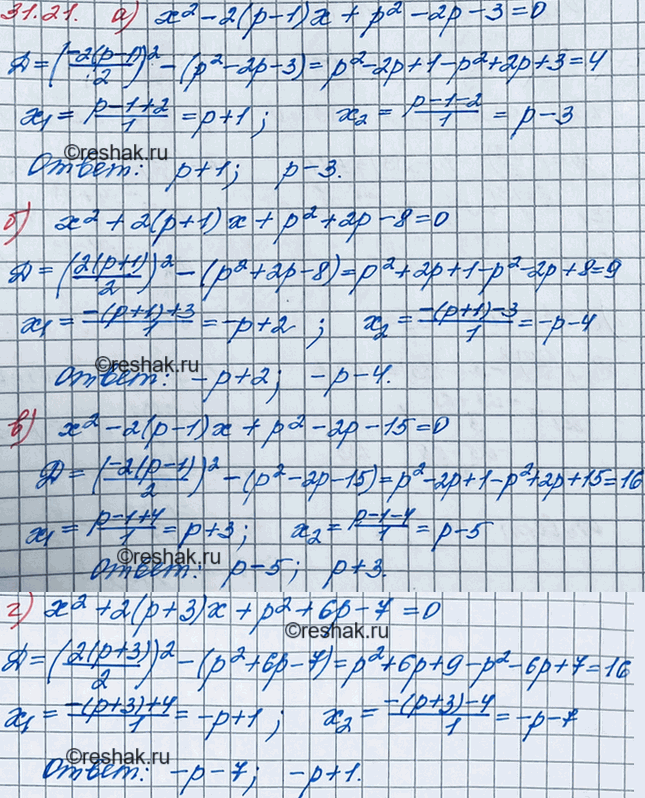 31.21. а) x² - 2(p-1)x + p² - 2p - 3 = 0
Д = (-2(p-1)/2)² - (p² - 2p - 3) = p² - 2p + 1 - p² + 2p + 3 = 4
x₁ = (p-1+2)/1 = p+1; x₂ = (p-1-2)/1 = p-3
©reshak.ru
Ответ: p+1; p-3.
б) x² + 2(p+1)x + p² + 2p - 8 = 0
Д = (2(p+1)/2)² - (p² + 2p - 8) = p² + 2p + 1 - p² - 2p + 8 = 9
x₁ = (-(p+1)+3)/1 = -p+2; x₂ = (-(p+1)-3)/1 = -p-4
©reshak.ru
Ответ: -p+2; -p-4.
в) x² - 2(p-1)x + p² - 2p - 15 = 0
Д = (-2(p-1)/2)² - (p² - 2p - 15) = p² - 2p + 1 - p² + 2p + 15 = 16
x₁ = (p-1+4)/1 = p+3; x₂ = (p-1-4)/1 = p-5
©reshak.ru
Ответ: p-5; p+3.
г) x² + 2(p+3)x + p² + 6p - 7 = 0
©reshak.ru
Д = (2(p+3)/2)² - (p² + 6p - 7) = p² + 6p + 9 - p² - 6p + 7 = 16
x₁ = (-(p+3)+4)/1 = -p+1; x₂ = (-(p+3)-4)/1 = -p-7
©reshak.ru
Ответ: -p-7; -p+1.